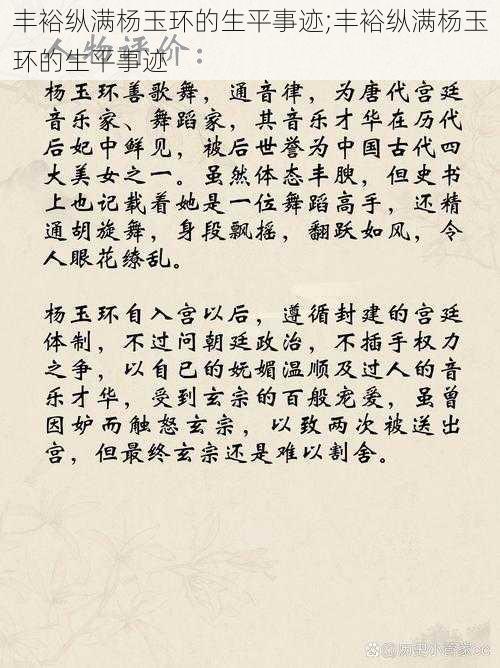 丰裕纵满杨玉环的生平事迹;丰裕纵满杨玉
环的生平事迹
人物评价：
杨玉环善歌舞，通音律，为唐代宫廷
音乐家、舞蹈家，其音乐才华在历代
后妃中鲜见，被后世誉为中国古代四
大美女之一。虽然体态丰腴，但史书
上也记载着她是一位舞蹈高手，还精
通胡旋舞，身段飘摇，翻跃如风，令
人眼花缭乱。
杨玉环自入宫以后，遵循封建的宫廷
体制，不过问朝廷政治，不插手权力
之争，以自己的妩媚温顺及过人的音
乐才华，受到玄宗的百般宠爱，虽曾
因妒而触怒玄宗，以致两次被送出
宫，但最终玄宗还是难以割舍。